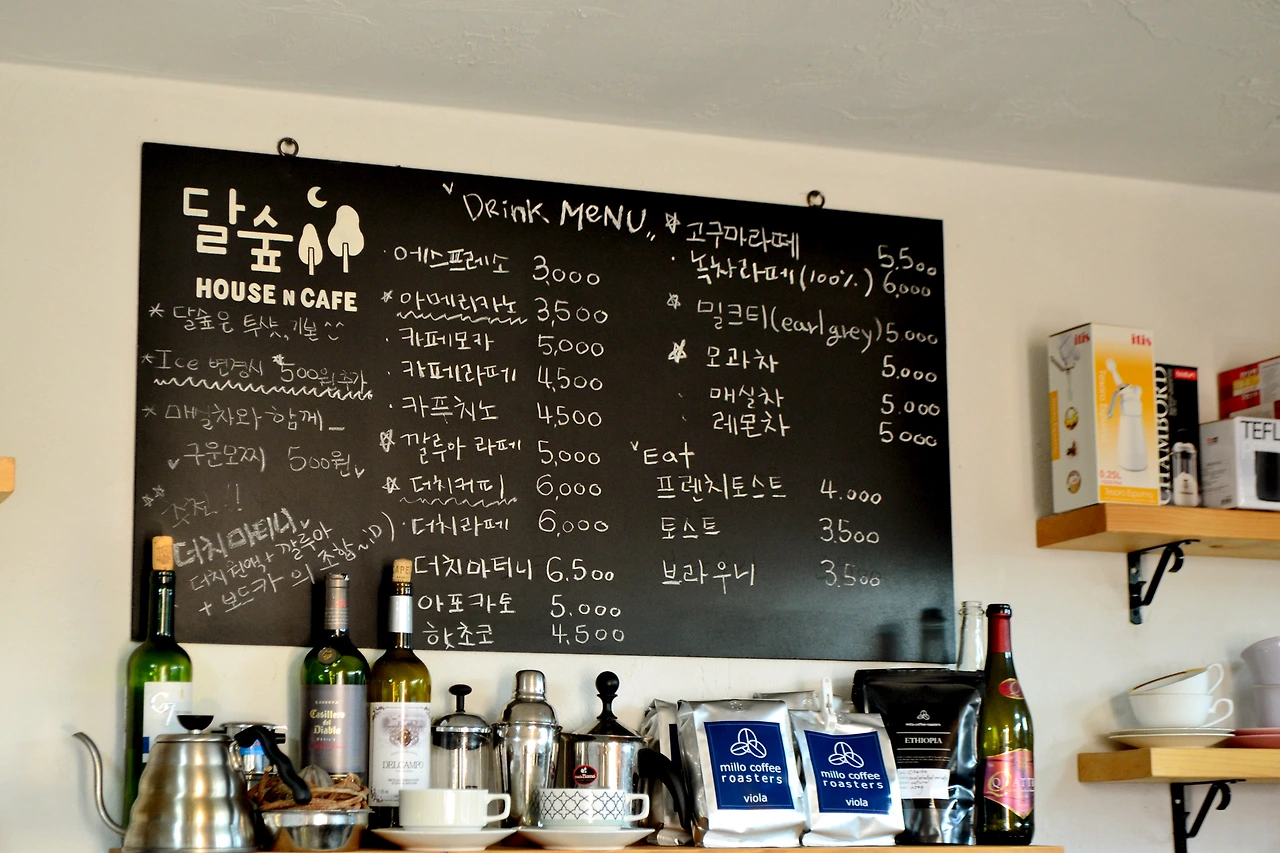 달숲
HOUSE N CAFE
* 달숲은 투샷, 기본 ^^
* Ice 변경시 *500원 추가
* 매실차와 함께
구운모찌 500원
더치마티니
더치원액 + 깔루아
+ 보드카의 조합~:D)
Drink MENU
· 에스프레소 3,000
* 아메리카노 3,500
· 카페모카 5,000
· 카페라떼 4,500
· 카푸치노 4,500
☆ 깔루아 라떼 5,000
☆ 더치커피 6,000
· 더치라떼 6,000
더치마티니 6.500
아포카토 5.000
핫초코 4,500
☆ 고구마라떼 5.500
· 녹차라떼(100%) 6,000
☆ 밀크티(earl grey) 5.000
☆ 모과차 5.000
· 매실차 5.000
· 레몬차 5000
Eat
프렌치토스트 4.000
토스트 3.500
브라우니 3,500
Casillero
del
Diablo
DELCAMPO
millo coffee
roasters
viola
millo coffee
roasters
viola
ETHIOPIA
itis
itis
0.25L
CHAMBORD
TEFL